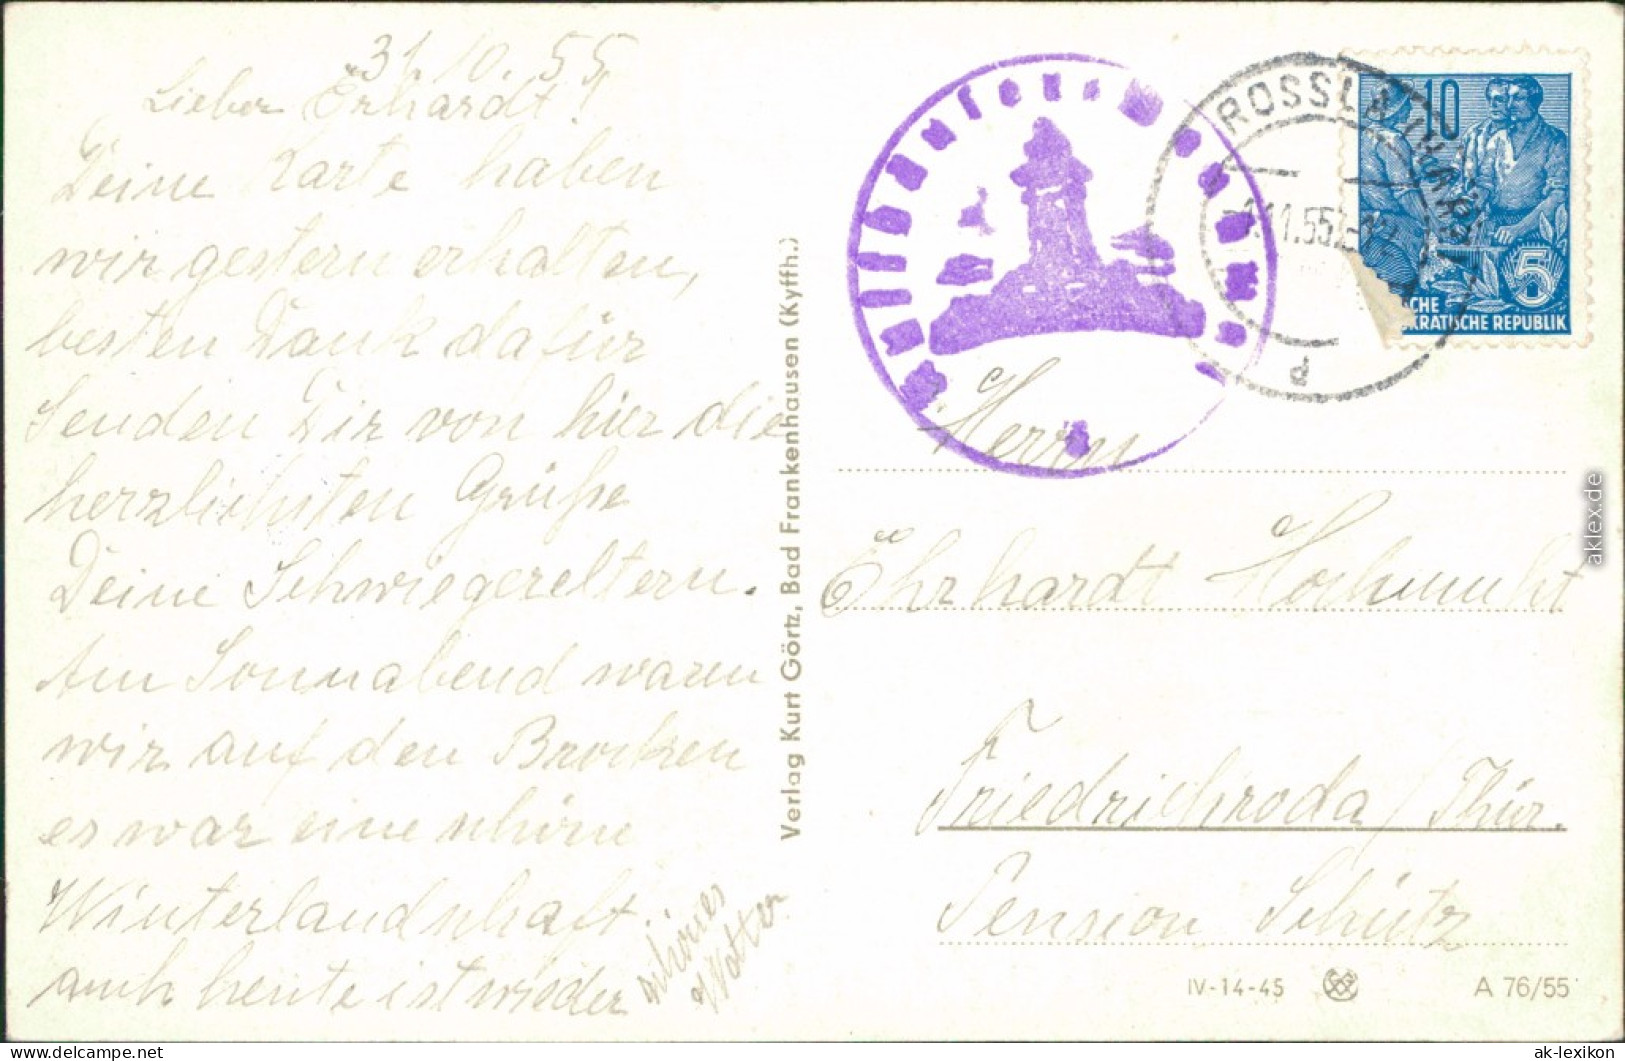 31.10.55
Lieber Erhardt!
Deine Karte haben
wir gestern erhalten,
besten Dank dafür
Senden Dir von hier die
herzlichsten Grüße
Deine Schwiegereltern.
Am Sonnabend waren
wir auf den Brocken
es war eine schöne
Winterlandschaft.
auch heute ist wieder
schönes
Wetter
Verlag Kurt Görtz, Bad Frankenhausen (Kyffh.)
ROSSLA
11.55
10
5
CHE
KRATISCHE REPUBLIK
Herrn
Ehrhardt
Friedrichroda / Thür.
Pension Schütz
IV-14-45
A 76/55
aklex.de
ak-lexikon